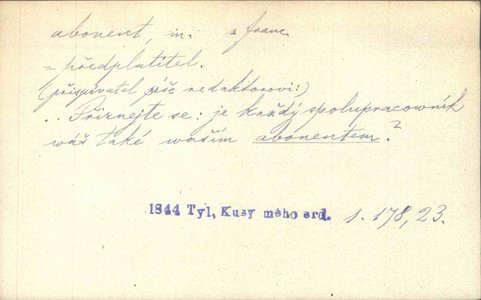 abonent, m. z franc.
= předplatitel.
(přispívatel píše redaktorovi:)
.. Přiznejte se: je každý spolupracovník
váš také vaším abonentem?
1844 Tyl, Kusy mého srd. 1. 178, 23.